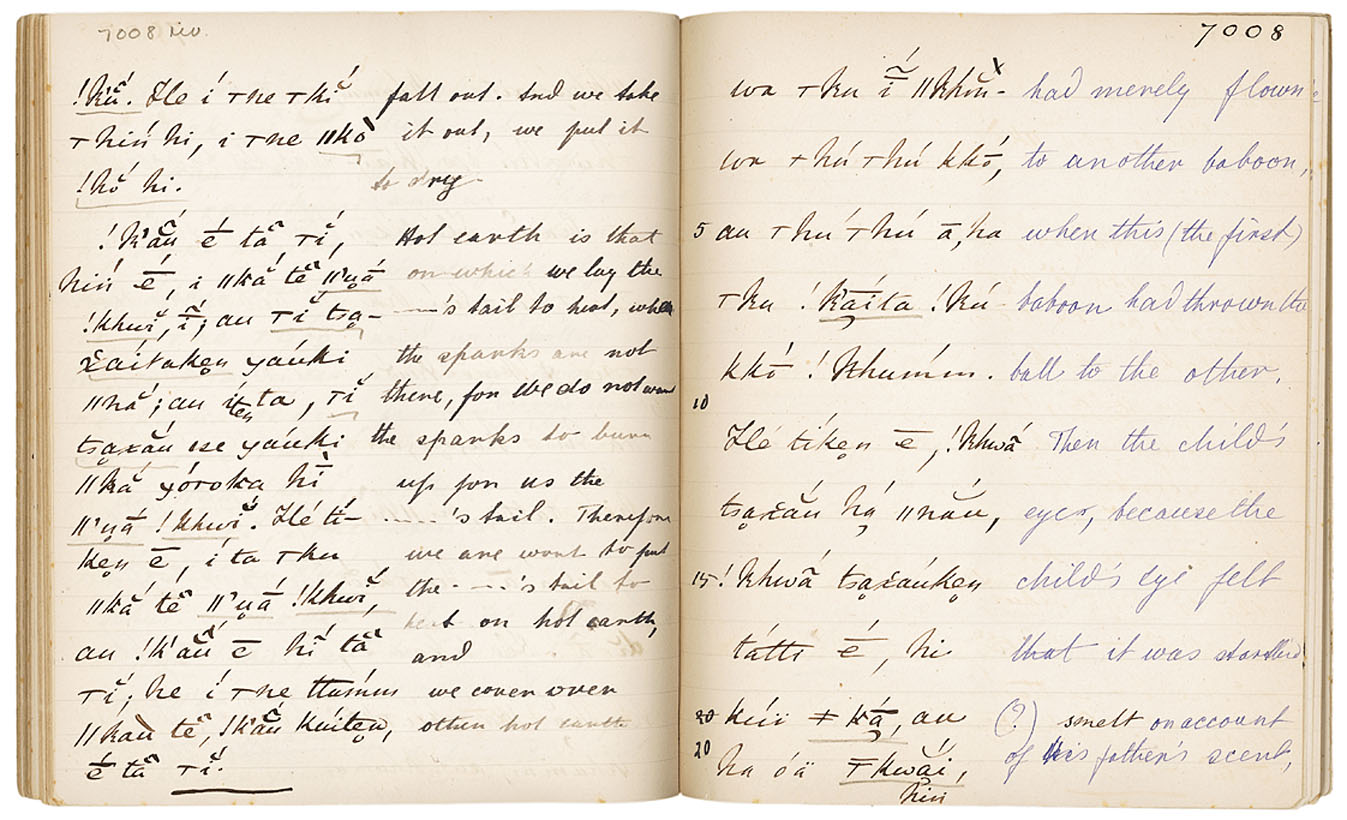 7008 rev.
!kù̆. Hé í ⊤ne ⊤kĭ́ fall out. And we take
⊤hiń hi, i ⊤ne ǁkò it out, we put it
!hó̆ hi. to dry.
!k'ắũ é̄ tā̃ ⊤ĭ́, Hot earth is that
hiń é̄, i ǁkắ tẽ̄ ǁ'ụā́ on which we lay the
!khwĭ́, ĩ̄́; au ⊤ĭ́ tsạ- ——'s tail to heat, when
x̣áitakẹn yáuki the sparks are not
ǁnắ; au íten ta, ⊤ĭ́ there, for we do not want
tsạxắu ose yáuki the sparks to burn
ǁkắ yóroka hī̀ up for us the
ǁ'ụā́ !khwĭ́. Hé tí- ——'s tail. Therefore
kẹn ē, í ta ⊤ku we are wont to put
ǁkắ tẽ̄ ǁ'ụā́ !khwĭ́, the ——'s tail to
au !k'ắũ ē hĭ́ tā̃ heat on hot earth, and
⊤ĭ́; he í ⊤ne ttúmm we cover over
ǁkaù tẽ̄, !k'ắũ kúitẹn, other hot earth
é̄ tā̃ ⊤ĭ́.
7008
wa ⊤ku ĩ̄́ ǁkhŭ́- had merely flown
wa ⊤hú ⊤hú kkṓ, to another baboon,
5 au ⊤hú ⊤hú ā, ha when this (the first)
⊤ku !kā́ita !kú- baboon had thrown the
kkṓ !khúmm. ball to the other.
10
Hé tíkẹn ē, !khwā̆́ Then the child's
tsạxắu hạ́ ǁnắu, eyes, because the
15 !khwā̆́ tsạxáukẹn child's eye felt
tátti é̄, hi that it was startled
20 kúï ǂkạ̄́, au (?) smelt on account
20 ha óä ⊤kwắi, hiń of his father's scent,